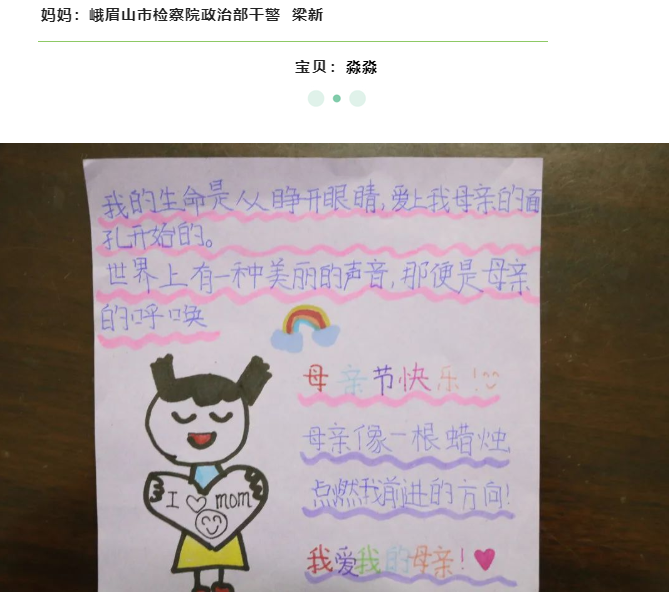 妈妈：峨眉山市检察院政治部干警 梁新
宝贝：淼淼
我的生命是从睁开眼睛,爱上我母亲的面
孔开始的。
世界上有一种美丽的声音,那便是母亲
的呼唤
母亲节快乐!
母亲像一根蜡烛
点燃我前进的方向!
I mom
我爱我的母亲!